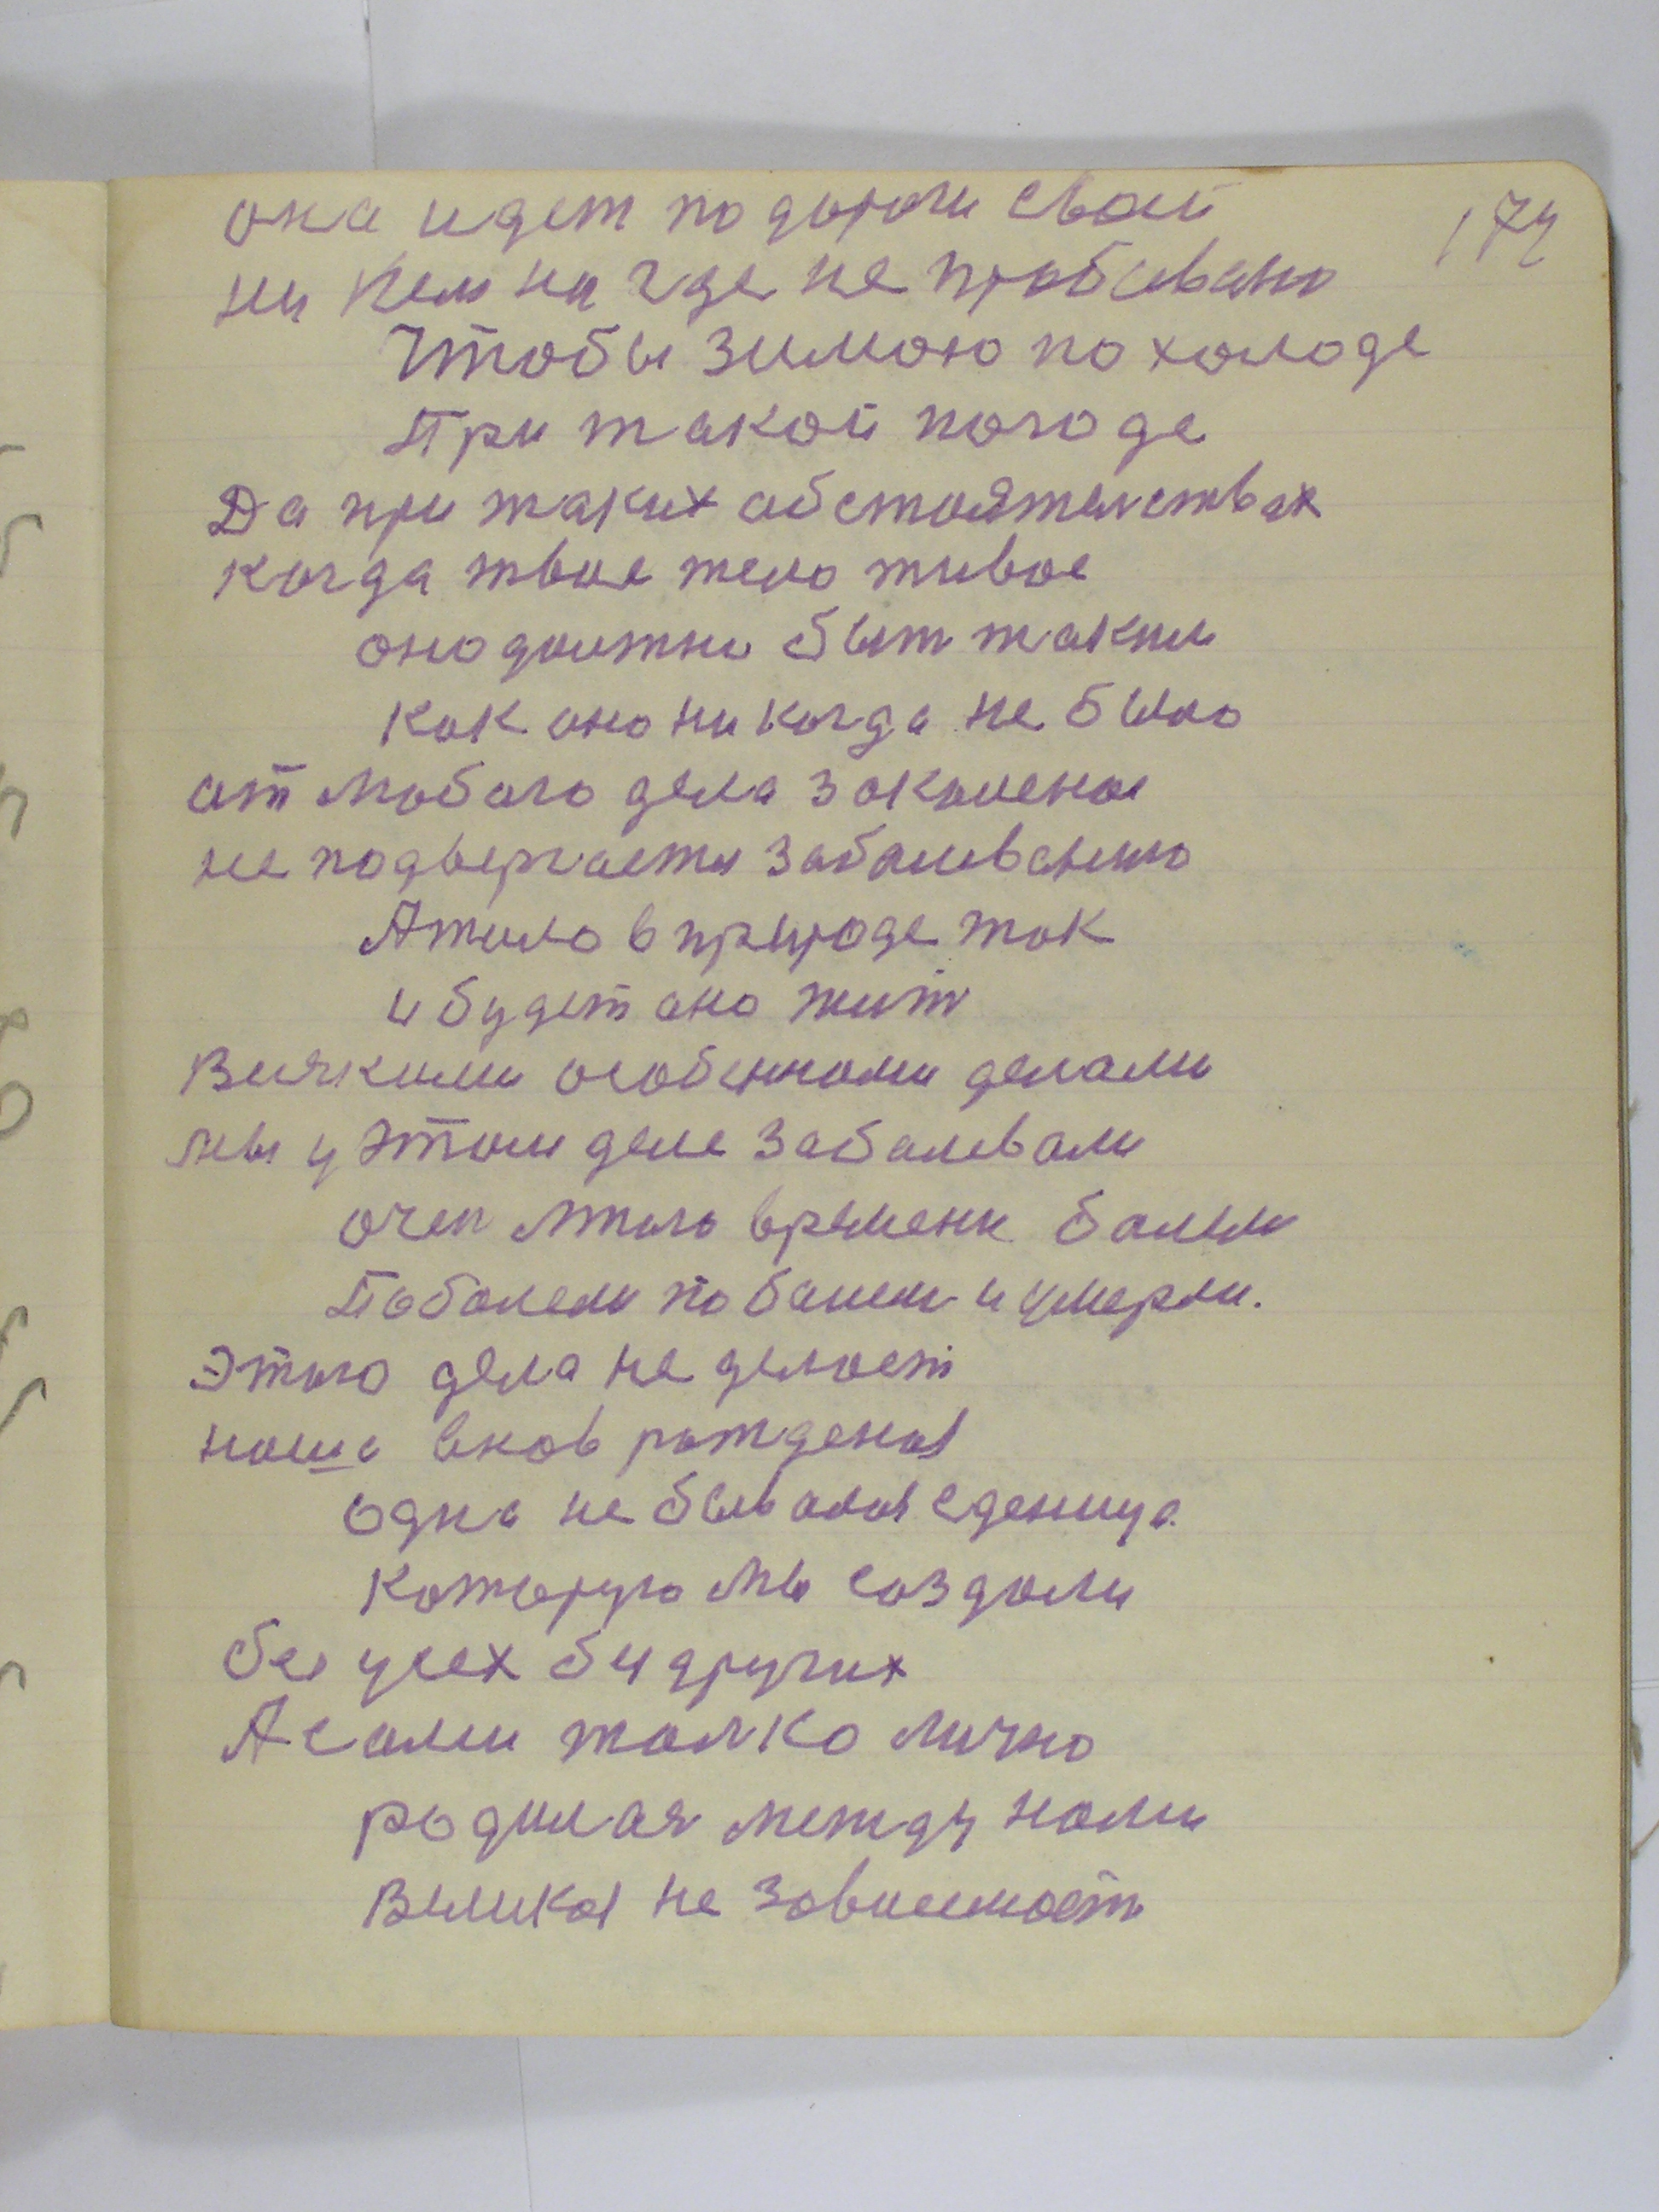 она идет по дороги своей
174
ни кем ни где не пробивано
Чтобы зимою по холоде
При такой погоде
Да при таких обстоятелствах
когда твое тело живое
оно должно быт таким
как оно никогда не было
от любого дела закаленое
не подвергается заболеванию
А жило в природе так
и будет оно жит
Всякими особенными делами
мы у этом деле заболевали
очен много времени болели
Поболели поболели и умерли.
Этого дела не делает
наша внов рождения
одна не бывалая еденица
которую мы создали
без усех без других
А сами толко лично
родилая между нами
Велика не зависимост